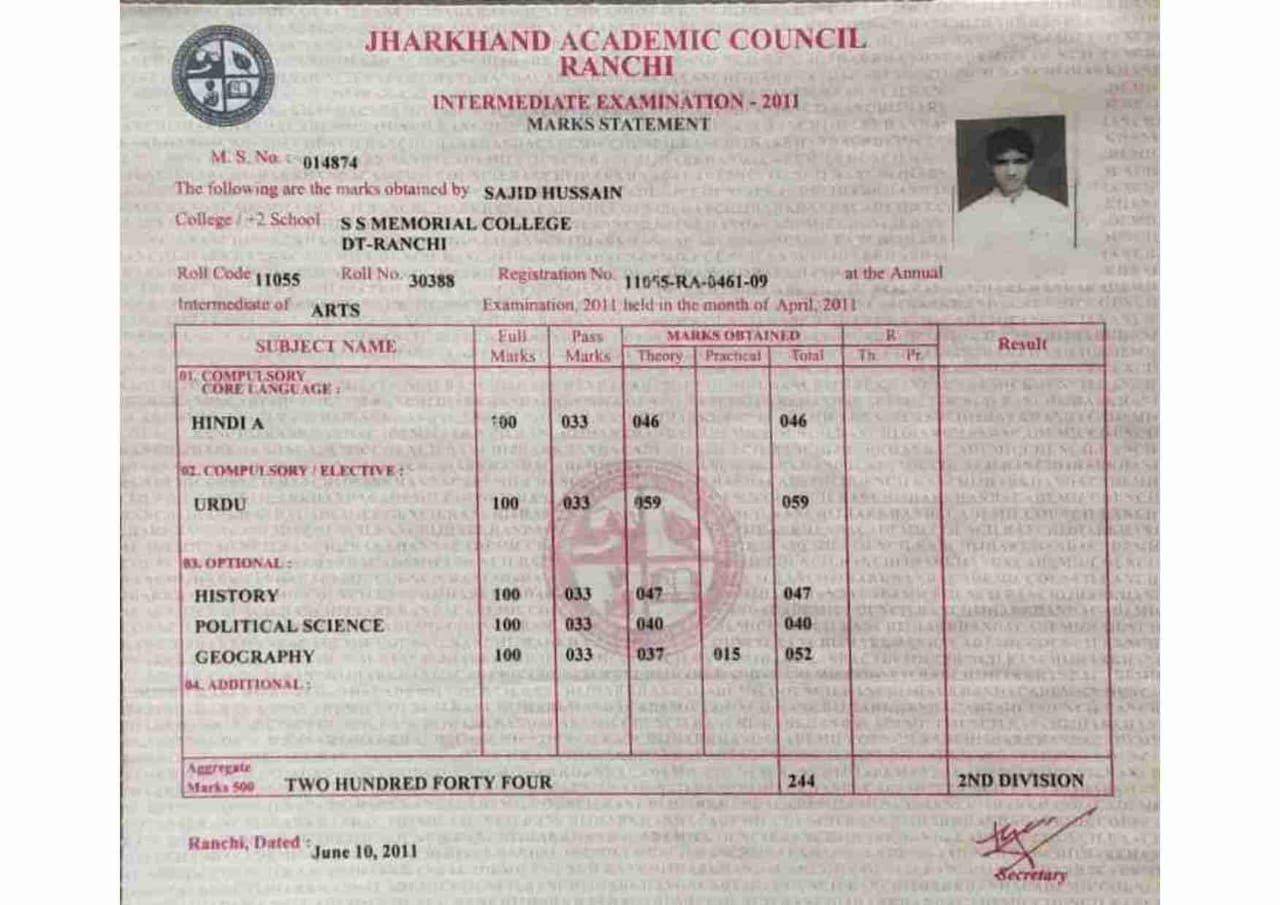 JHARKHAND ACADEMIC COUNCIL
RANCHI
INTERMEDIATE EXAMINATION - 2011
MARKS STATEMENT
M. S. No. : 014874
The following are the marks obtained by SAJID HUSSAIN
College / +2 School S S MEMORIAL COLLEGE
DT-RANCHI
Roll Code 11055 Roll No. 30388 Registration No. 11055-RA-0461-09 at the Annual
Intermediate of ARTS Examination, 2011 held in the month of April, 2011
SUBJECT NAME Full Marks Pass Marks MARKS OBTAINED R Result
Theory Practical Total Th. Pr.
01. COMPULSORY
CORE LANGUAGE :
HINDI A 100 033 046 046
02. COMPULSORY / ELECTIVE :
URDU 100 033 059 059
03. OPTIONAL :
HISTORY 100 033 047 047
POLITICAL SCIENCE 100 033 040 040
GEOGRAPHY 100 033 037 015 052
04. ADDITIONAL :
Aggregate
Marks 500 TWO HUNDRED FORTY FOUR 244 2ND DIVISION
Ranchi, Dated : June 10, 2011
Secretary